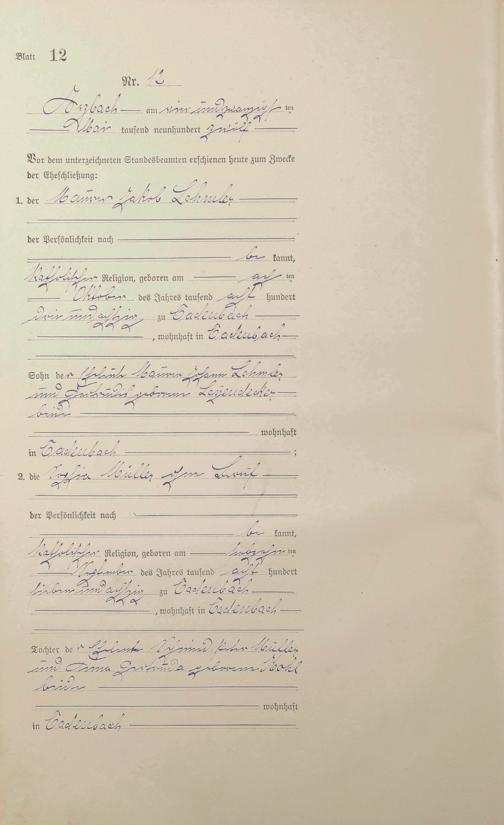 Blatt 12
Nr. 12
am ein und zwanzig ten
Mai tausend neunhundert zwölf
Vor dem unterzeichneten Standesbeamten erschienen heute zum Zwecke
der Eheschließung:
1. der Maurer Jakob Lehmler
der Persönlichkeit nach
be kannt,
katholischer Religion, geboren am ach ten
Oktober des Jahres tausend acht hundert
drei und achtzig zu Cadenbach
, wohnhaft in Cadenbach
Sohn der Eheleute Maurer Johann Lehmler
und Gertrudis geborenen Leyendecker
beide
wohnhaft
in Cadenbach ;
2. die Sofia Müller ohne Beruf
der Persönlichkeit nach
be kannt,
katholischer Religion, geboren am ten
September des Jahres tausend acht hundert
sieben und achtzig zu Cadenbach
, wohnhaft in Cadenbach
Tochter der Eheleute Peter Müller
und Anna Gertruda geborenen
beide
wohnhaft
in Cadenbach